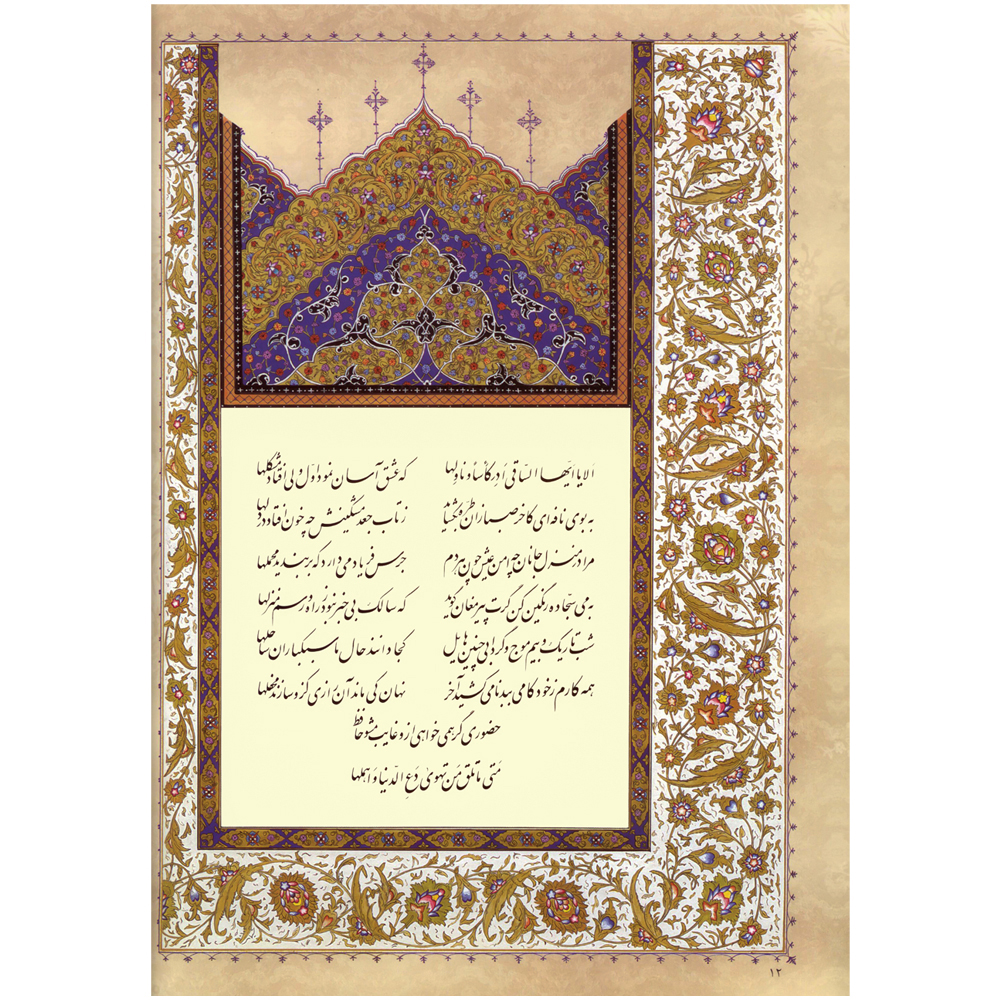 اَلا یا اَیُّهَا السّاقی اَدِر کَأساً وَ ناوِلها که عشق آسان نمود اوّل ولی افتاد مشکلها
به بوی نافه‌ای کاخر صبا زان طرّه بگشاید ز تاب جعد مشکینش چه خون افتاد در دلها
مرا در منزل جانان چه امن عیش چون هر دم جرس فریاد می‌دارد که بربندید محملها
به می سجّاده رنگین کن گرت پیر مغان گوید که سالک بی‌خبر نبود ز راه و رسم منزلها
شب تاریک و بیم موج و گردابی چنین هایل کجا دانند حال ما سبکباران ساحلها
همه کارم ز خود کامی به بدنامی کشید آخر نهان کی ماند آن رازی کزو سازند محفلها
حضوری گر همی خواهی ازو غایب مشو حافظ
مَتی ما تَلقَ مَن تَهوی دَعِ الدُّنیا وَ اَهمِلها
۱۲